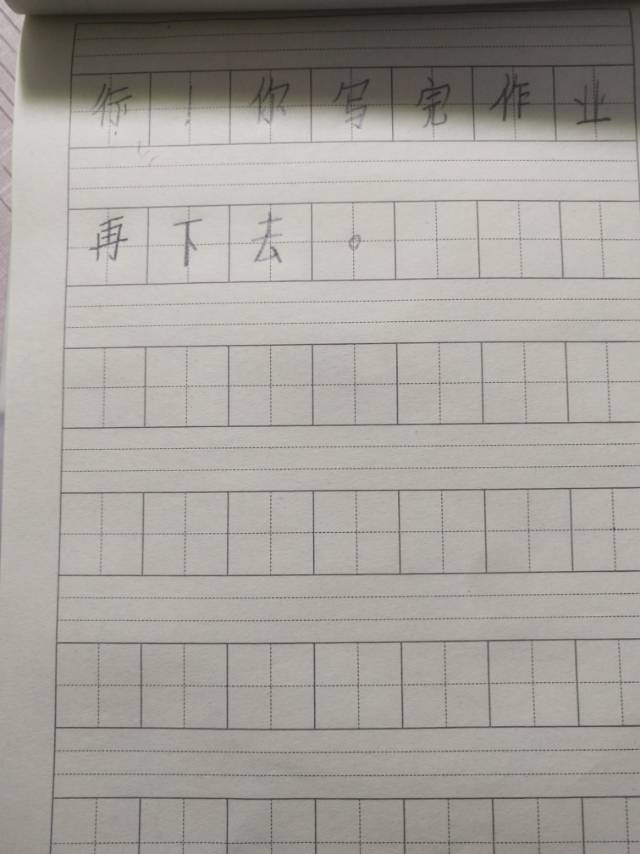 行！你写完作业
再下去。